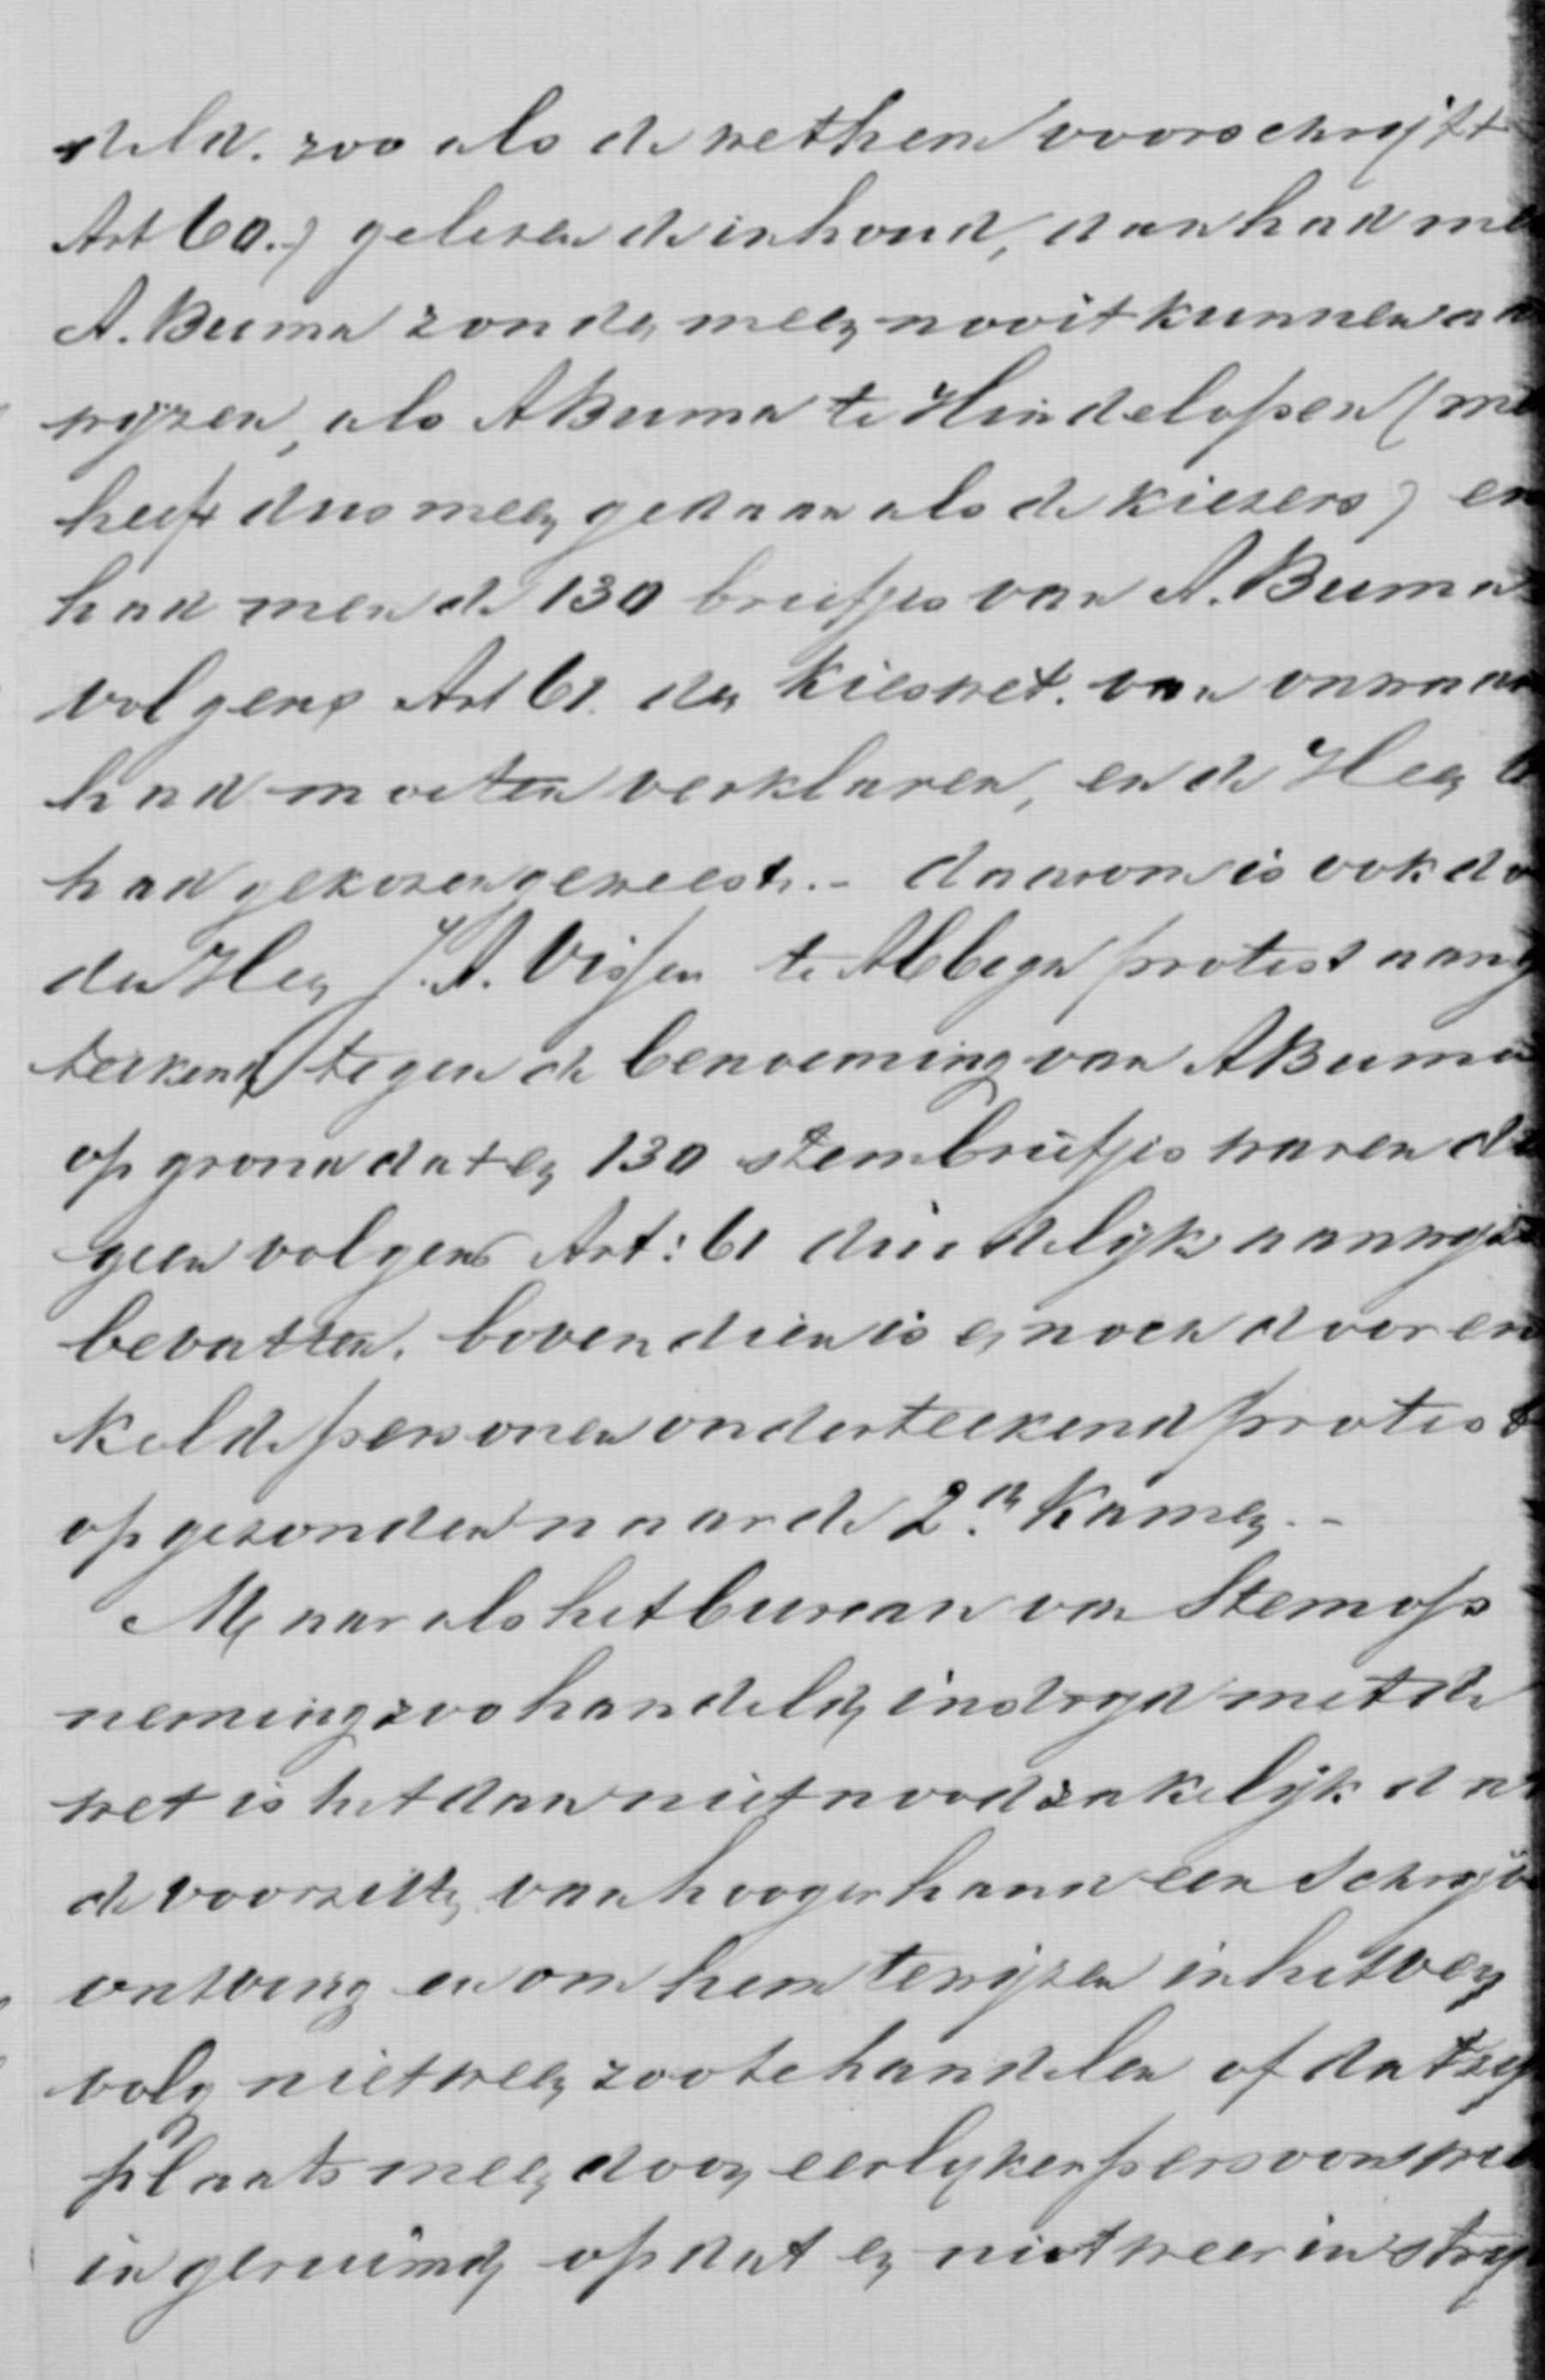 deld. zoo als de wet hem voorschrijft
Art 60.) gelezen de inhoud, dan had me
A. Buma zonder meer nooit kunnen aa
wijzen, als A Buma te Hindelopen (me
heeft dus meer gedaan als de kiezers) en
had men de 130 briefjes van A. Buma
volgens Art 61. der Kieswet. van onwaar
had moeten verklaren, en de Heer
had gekozen geweest. - daarom is ook do
den Heer J. A. Visser te Abbega protest aang
teekend tegen de benoeming van A Buma
op grond dat er 130 stembriefjes waren di
geen volgens Art: 61 duidelijke aanwijz
bevatten. bovendien is er noch door en
kelde personen onderteekend protest
opgezonden naar de 2de Kamer. -
Maar als het bureau van Stemop
neming zoo handeld, in strijd met de
wet is het dan niet noodzakelijk dat
de voorzitter van hooger hand een schrijve
ontving en om hem te wijzen in het ver
volg niet weer zoo te handelen of dat zij
plaats meer door eerlijker persoon wie
in geruimd, op dat er niet weer in strij